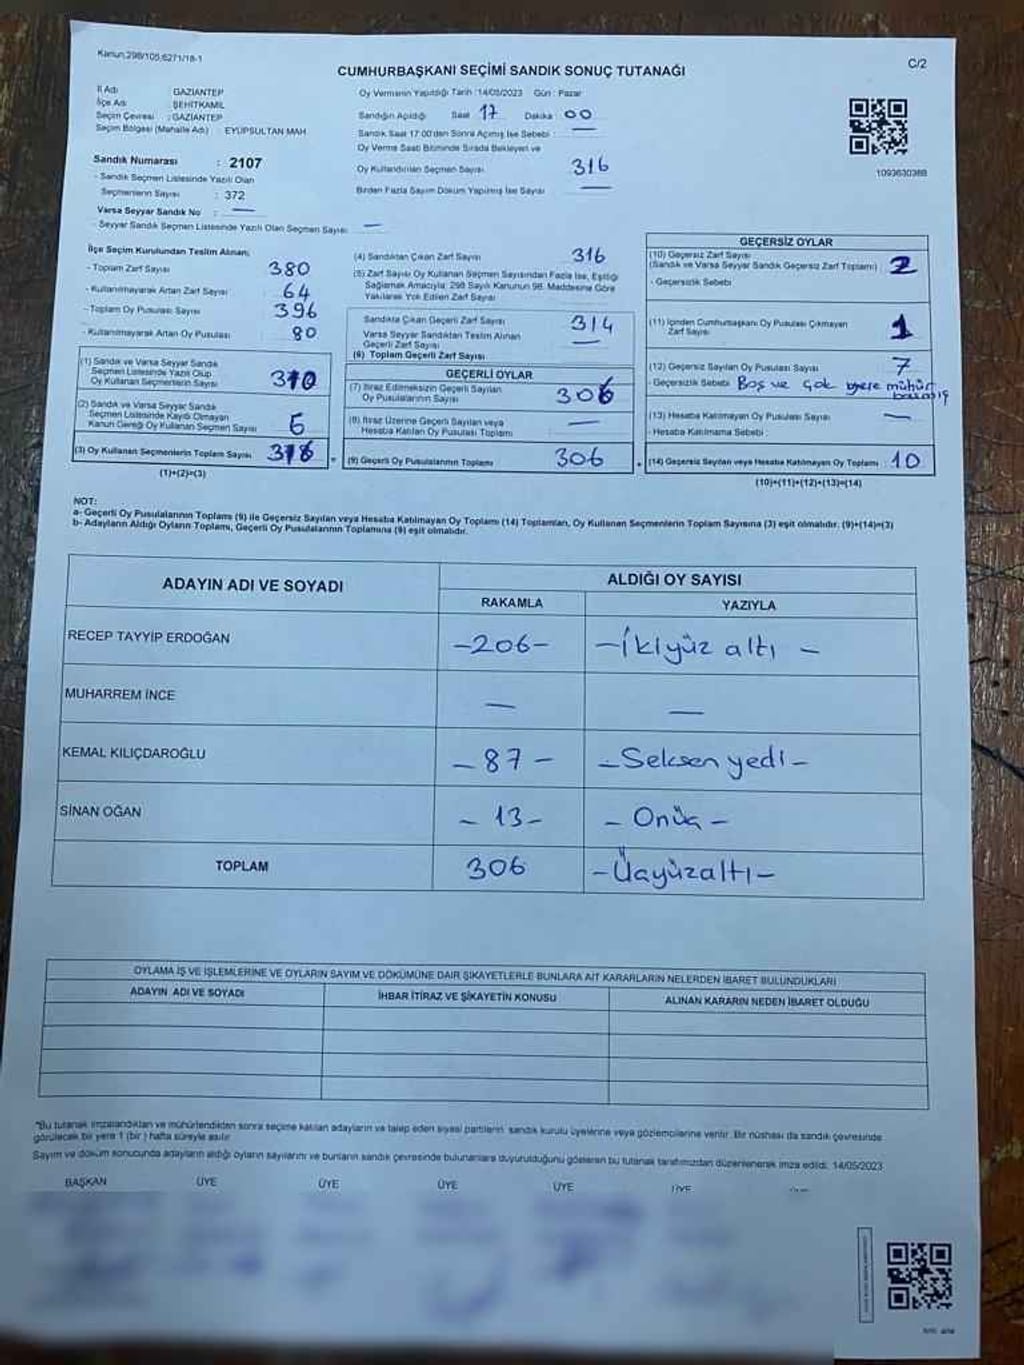 Kanun:298/105,6271/18-1
C/2
CUMHURBAŞKANI SEÇİMİ SANDIK SONUÇ TUTANAĞI
İl Adı GAZİANTEP
İlçe Adı ŞEHİTKAMİL
Seçim Çevresi : GAZİANTEP
Seçim Bölgesi (Mahalle Adı) : EYÜPSULTAN MAH.
Sandık Numarası : 2107
- Sandık Seçmen Listesinde Yazılı Olan
Seçmenlerin Sayısı : 372
Varsa Seyyar Sandık No : —
- Seyyar Sandık Seçmen Listesinde Yazılı Olan Seçmen Sayısı : —
Oy Vermenin Yapıldığı Tarih : 14/05/2023 Gün : Pazar
Sandığın Açıldığı Saat 17 Dakika 00
Sandık Saat 17:00'den Sonra Açılmış İse Sebebi : —
Oy Verme Saati Bitiminde Sırada Bekleyen ve
Oy Kullandırılan Seçmen Sayısı 316
Birden Fazla Sayım Döküm Yapılmış İse Sayısı —
1093630388
İlçe Seçim Kurulundan Teslim Alınan;
- Toplam Zarf Sayısı 380
- Kullanılmayarak Artan Zarf Sayısı 64
- Toplam Oy Pusulası Sayısı 396
- Kullanılmayarak Artan Oy Pusulası 80
(1) Sandık ve Varsa Seyyar Sandık
Seçmen Listesinde Yazılı Olup
Oy Kullanan Seçmenlerin Sayısı 310
(2) Sandık ve Varsa Seyyar Sandık
Seçmen Listesinde Kayıtlı Olmayan
Kanun Gereği Oy Kullanan Seçmen Sayısı 6
(3) Oy Kullanan Seçmenlerin Toplam Sayısı 316
(1)+(2)=(3)
(4) Sandıktan Çıkan Zarf Sayısı 316
(5) Zarf Sayısı Oy Kullanan Seçmen Sayısından Fazla İse, Eşitliği
Sağlamak Amacıyla 298 Sayılı Kanunun 98. Maddesine Göre
Yakılarak Yok Edilen Zarf Sayısı
Sandıkta Çıkan Geçerli Zarf Sayısı 314
Varsa Seyyar Sandıktan Teslim Alınan
Geçerli Zarf Sayısı —
(6) Toplam Geçerli Zarf Sayısı
GEÇERLİ OYLAR
(7) İtiraz Edilmeksizin Geçerli Sayılan
Oy Pusulalarının Sayısı 306
(8) İtiraz Üzerine Geçerli Sayılan veya
Hesaba Katılan Oy Pusulası Toplamı —
(9) Geçerli Oy Pusulalarının Toplamı 306
GEÇERSİZ OYLAR
(10) Geçersiz Zarf Sayısı
(Sandık ve Varsa Seyyar Sandık Geçersiz Zarf Toplamı) 2
- Geçersizlik Sebebi
(11) İçinden Cumhurbaşkanı Oy Pusulası Çıkmayan
Zarf Sayısı 1
(12) Geçersiz Sayılan Oy Pusulası Sayısı 7
- Geçersizlik Sebebi Boş ve çok yere mühür
(13) Hesaba Katılmayan Oy Pusulası Sayısı —
- Hesaba Katılmama Sebebi :
(14) Geçersiz Sayılan veya Hesaba Katılmayan Oy Toplamı : 10
(10)+(11)+(12)+(13)=(14)
NOT:
a- Geçerli Oy Pusulalarının Toplamı (9) ile Geçersiz Sayılan veya Hesaba Katılmayan Oy Toplamı (14) Toplamları, Oy Kullanan Seçmenlerin Toplam Sayısına (3) eşit olmalıdır. (9)+(14)=(3)
b- Adayların Aldığı Oyların Toplamı, Geçerli Oy Pusulalarının Toplamına (9) eşit olmalıdır.
ADAYIN ADI VE SOYADI
ALDIĞI OY SAYISI
RAKAMLA YAZIYLA
RECEP TAYYİP ERDOĞAN -206- -İkiyüz altı -
MUHARREM İNCE — —
KEMAL KILIÇDAROĞLU -87- -Seksen yedi-
SİNAN OĞAN -13- -Onüç-
TOPLAM 306 -Üçyüzaltı-
OYLAMA İŞ VE İŞLEMLERİNE VE OYLARIN SAYIM VE DÖKÜMÜNE DAİR ŞİKAYETLERLE BUNLARA AİT KARARLARIN NELERDEN İBARET BULUNDUKLARI
ADAYIN ADI VE SOYADI İHBAR İTİRAZ VE ŞİKAYETİN KONUSU ALINAN KARARIN NEDEN İBARET OLDUĞU
*Bu tutanak imzalandıktan ve mühürlendikten sonra seçime katılan adayların ve talep eden siyasi partilerin sandık kurulu üyelerine veya gözlemcilerine verilir. Bir nüshası da sandık çevresinde
görülecek bir yere 1 (bir) hafta süreyle asılır.
Sayım ve döküm sonucunda adayların aldığı oyların sayılarını ve bunların sandık çevresinde bulunanlara duyurulduğunu gösteren bu tutanak tarafımızdan düzenlenerek imza edildi. 14/05/2023
BAŞKAN ÜYE ÜYE ÜYE ÜYE ÜYE